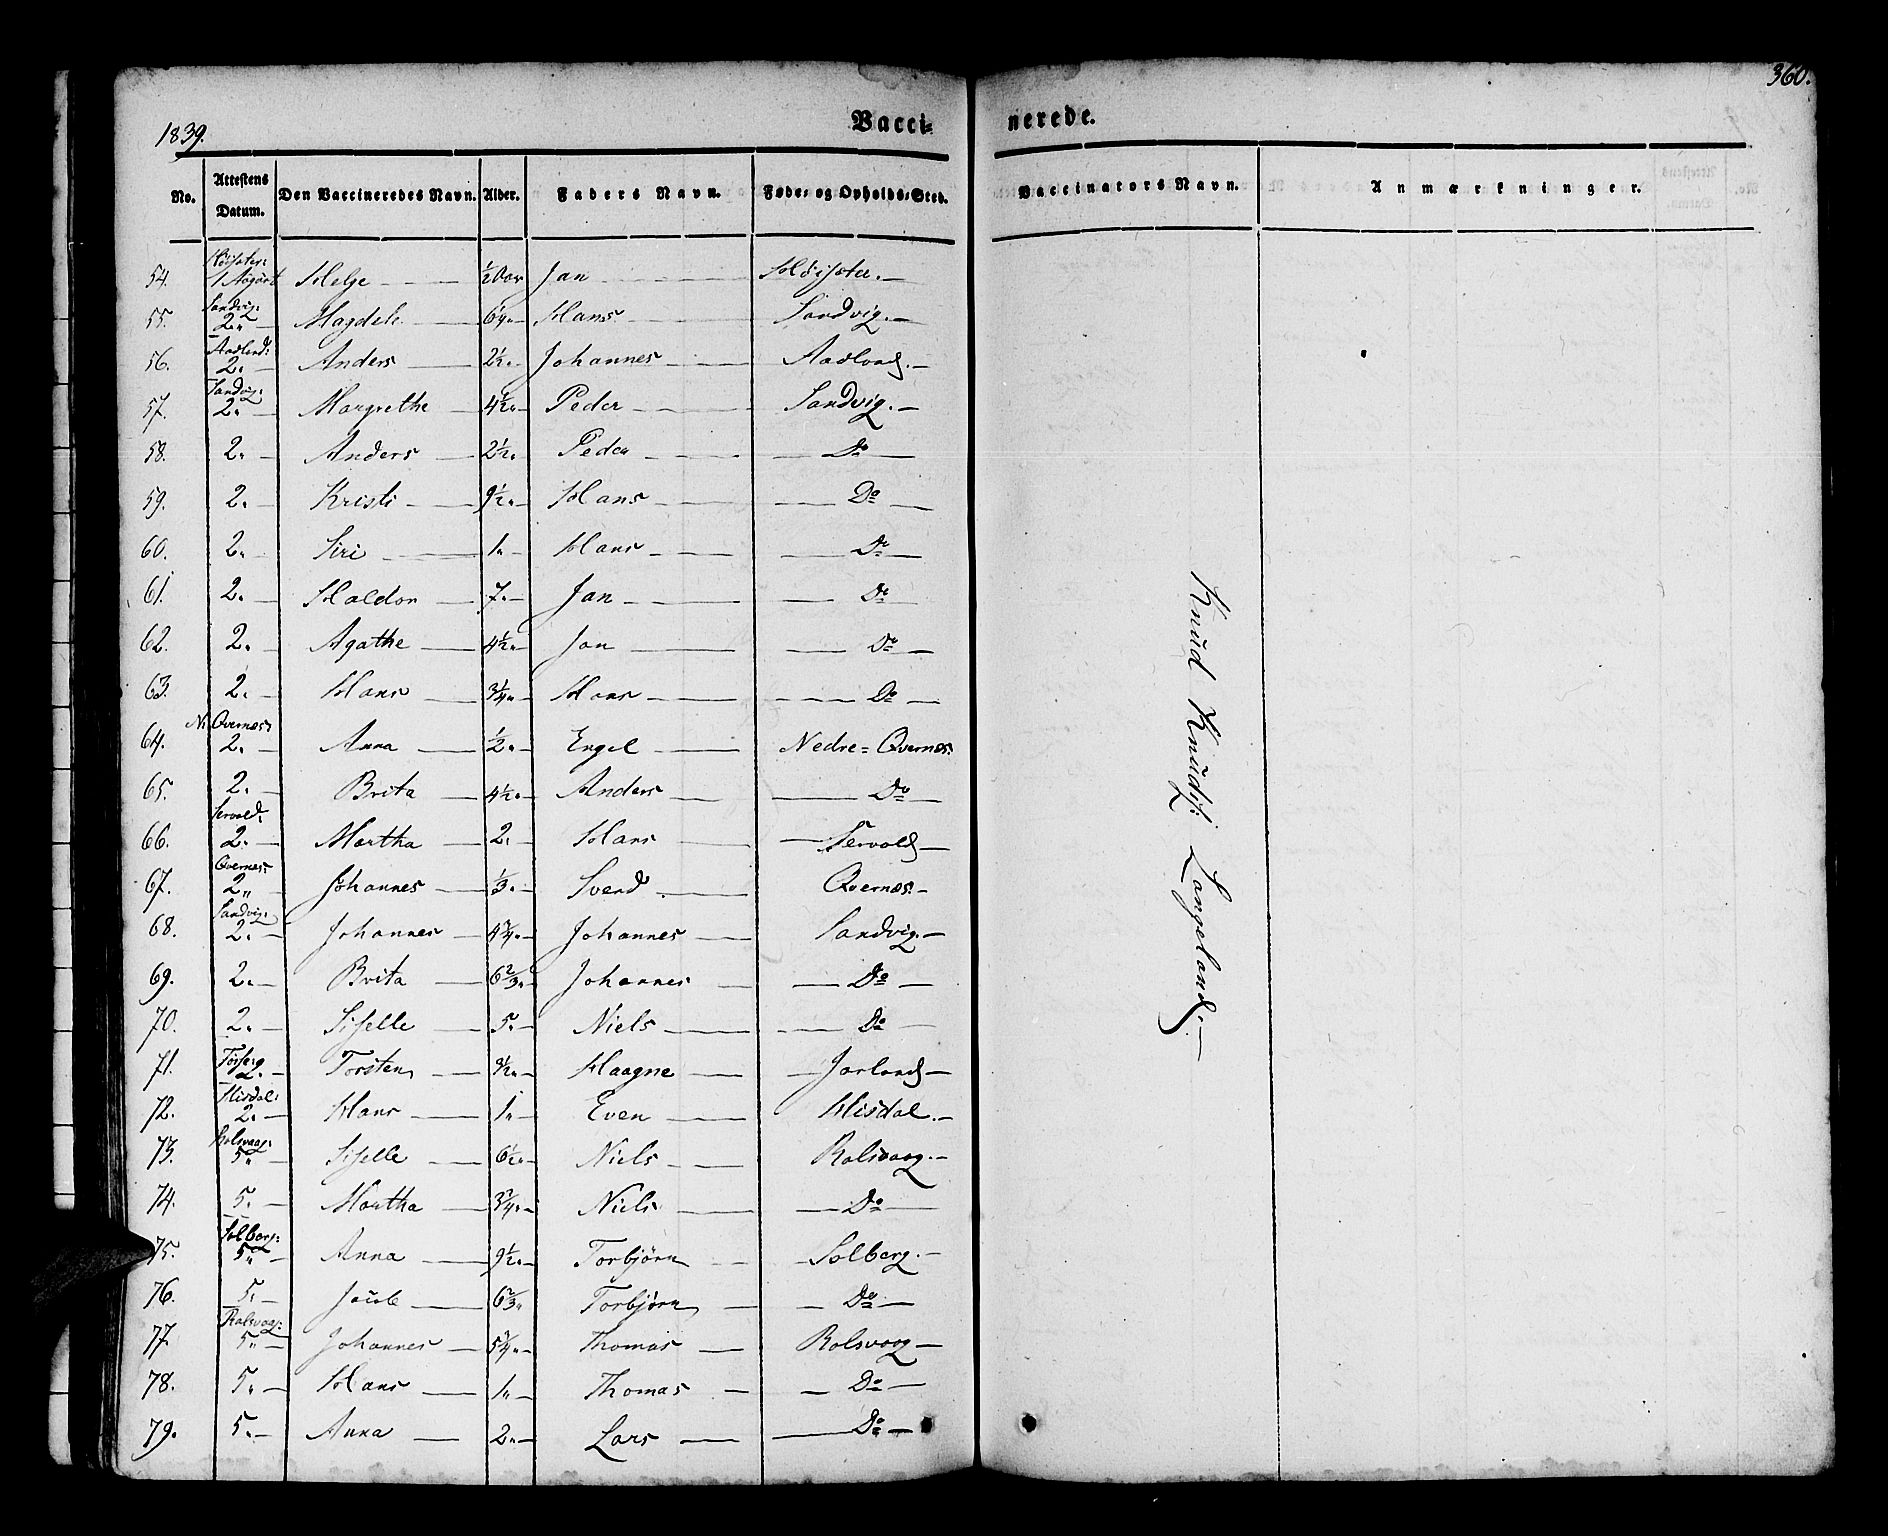 360.
1839.
Vacci= nerede.
No. Attestens Datum. Den Vaccineredes Navn. Alder. Faders Navn. Føde= og Opholds=Sted. Vaccinators Navn. Anmærkninger.
54. Høiseter: 1 August Helge — ½ Aar Jan — Høisæter. —
55. Sandvig: 2" — Magdeli — 6¼" — Hans — Sandvig. —
56. Aadland: 2. — Anders — 2½" — Johannes — Aadland. —
57. Sandvig: 2. — Margrethe — 4½" — Peder — Sandvig. —
58. 2. — Anders — 2½" Peder — Do —
59. 2. — Kristi — 9½" — Hans — Do —
60. 2. — Siri — 1" — Hans — Do —
61. 2. — Haldor — 7" — Jan — Do —
62. 2. — Agathe — 4½" — Jan — Do —
63. 2. — Hans — ¾" — Hans — Do —
64. N: Qvernæs: 2. — Anna — ½" — Engel — Nedre= Qvernæs.
65. 2. — Brita — 4½" — Anders — Do —
66. Servold: 2. — Martha — 2. — Hans — Servold —
67. Qvernæs: 2" — Johannes — ⅓" — Svend — Qvernæs. —
68. Sandvig: 2. — Johannes — 4¾" — Johannes — Sandvig. —
69. 2. — Brita — 6⅔" — Johannes — Do —
70. 2. — Siselle — 5" — Niels — Do —
71. 2. — Torsten — Haagne — Jarland —
72. Misdal: 2. — Hans — 1" Even — Misdal. —
73. Rolsvaag: 5" — Siselle — 6½" — Niels — Rolsvaag. —
74. 5. — Martha — 3¾" — Niels — Do —
75. Solberg: 5" — Anna — 9½" — Torbjørn — Solberg. —
76. 5. — Jacob — 6⅔" Torbjørn — Do —
77. Rolsvaag: 5" — Johannes — 5¾" — Thomas — Rolsvaag —
78. 5. — Hans — 1" — Thomas — Do —
79. 5. — Anna — 2" — Lars — Do —
Knud Knuds: Langeland. —